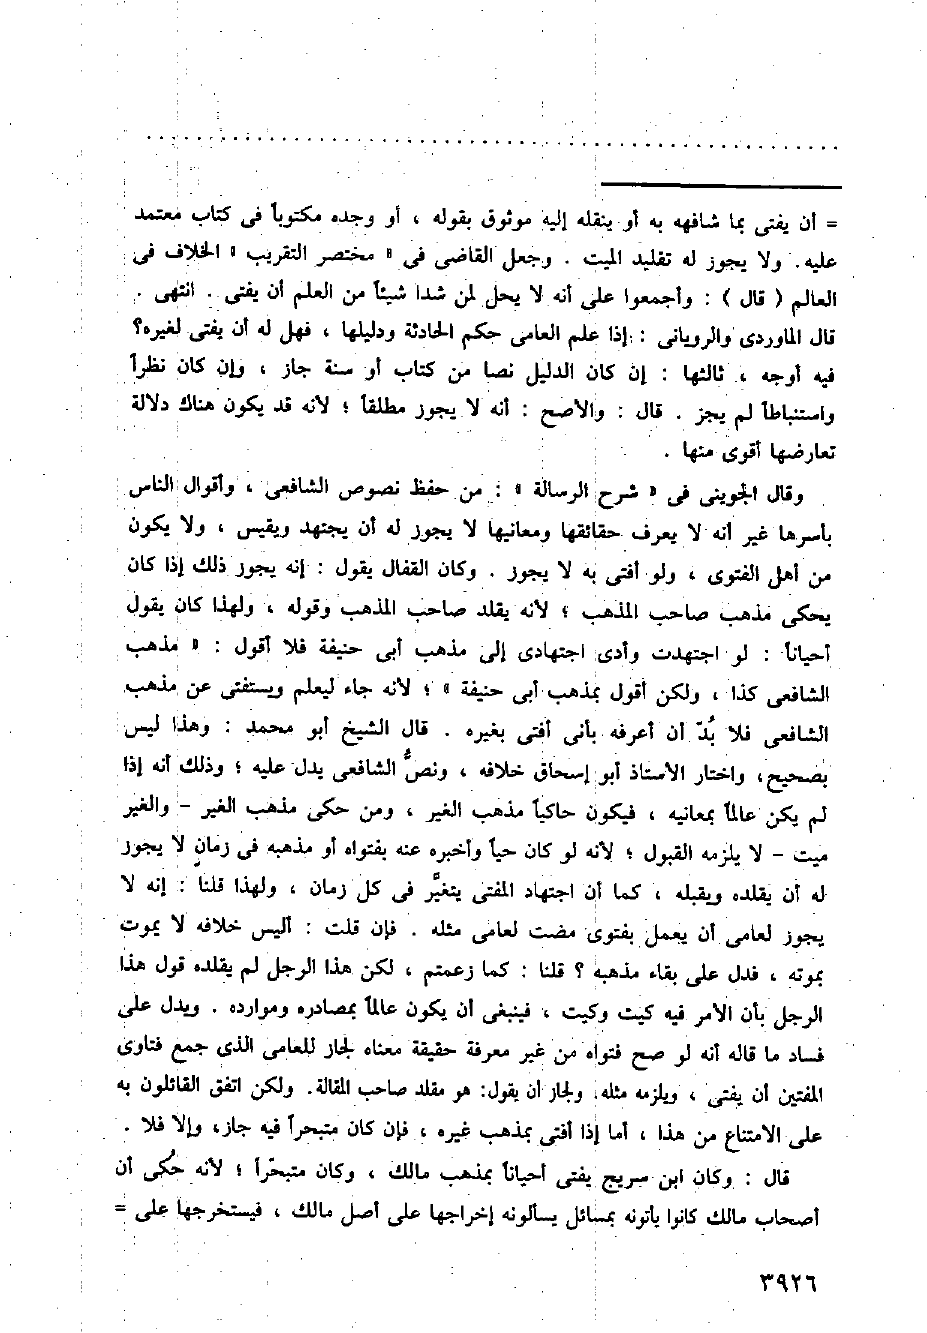 = أن يفتى بما شافهه به أو ينقله إليه موثوق بقوله ، أو وجده مكتوباً فى كتاب معتمد
عليه. ولا يجوز له تقليد الميت . وجعل القاضى فى « مختصر التقريب » الخلاف فى
العالم ( قال ) : وأجمعوا على أنه لا يحل لمن شدا شيئاً من العلم أن يفتى . انتهى .
قال الماوردى والرويانى : إذا علم العامى حكم الحادثة ودليلها ، فهل له أن يفتى لغيره؟
فيه أوجه ، ثالثها : إن كان الدليل نصا من كتاب أو سنة جاز ، وإن كان نظراً
واستنباطاً لم يجز . قال : والأصح : أنه لا يجوز مطلقاً ؛ لأنه قد يكون هناك دلالة
تعارضها أقوى منها .
وقال الجوينى فى « شرح الرسالة » : من حفظ نصوص الشافعى ، وأقوال الناس
بأسرها غير أنه لا يعرف حقائقها ومعانيها لا يجوز له أن يجتهد ويقيس ، ولا يكون
من أهل الفتوى ، ولو أفتى به لا يجوز . وكان القفال يقول : إنه يجوز ذلك إذا كان
يحكى مذهب صاحب المذهب ؛ لأنه يقلد صاحب المذهب وقوله ، ولهذا كان يقول
أحياناً : لو اجتهدت وأدى اجتهادى إلى مذهب أبى حنيفة فلا أقول : « مذهب
الشافعى كذا ، ولكن أقول بمذهب أبى حنيفة » ؛ لأنه جاء ليعلم ويستفتى عن مذهب
الشافعى فلا بُدّ أن أعرفه بأنى أفتى بغيره . قال الشيخ أبو محمد : وهذا ليس
بصحيح، واختار الأستاذ أبو إسحاق خلافه ، ونصُّ الشافعى يدل عليه ؛ وذلك أنه إذا
لم يكن عالماً بمعانيه ، فيكون حاكياً مذهب الغير ، ومن حكى مذهب الغير – والغير
ميت – لا يلزمه القبول ؛ لأنه لو كان حياً وأخبره عنه بفتواه أو مذهبه فى زمانٍ لا يجوز
له أن يقلده ويقبله ، كما أن اجتهاد المفتى يتغيَّر فى كل زمان ، ولهذا قلنا : إنه لا
يجوز لعامى أن يعمل بفتوى مضت لعامى مثله . فإن قلت : أليس خلافه لا يموت
بموته ، فدل على بقاء مذهبه ؟ قلنا : كما زعمتم ، لكن هذا الرجل لم يقلده قول هذا
الرجل بأن الأمر فيه كيت وكيت ، فينبغى أن يكون عالماً بمصادره وموارده . ويدل على
فساد ما قاله أنه لو صح فتواه من غير معرفة حقيقة معناه لجاز للعامى الذى جمع فتاوى
المفتين أن يفتى ، ويلزمه مثله، ولجاز أن يقول: هو مقلد صاحب المقالة. ولكن اتفق القائلون به
على الامتناع من هذا ، أما إذا أفتى بمذهب غيره ، فإن كان متبحراً فيه جاز، وإلا فلا .
قال : وكان ابن سريج يفتى أحياناً بمذهب مالك ، وكان متبحّراً ؛ لأنه حُكى أن
أصحاب مالك كانوا يأتونه بمسائل يسألونه إخراجها على أصل مالك ، فيستخرجها على =
٣٩٢٦